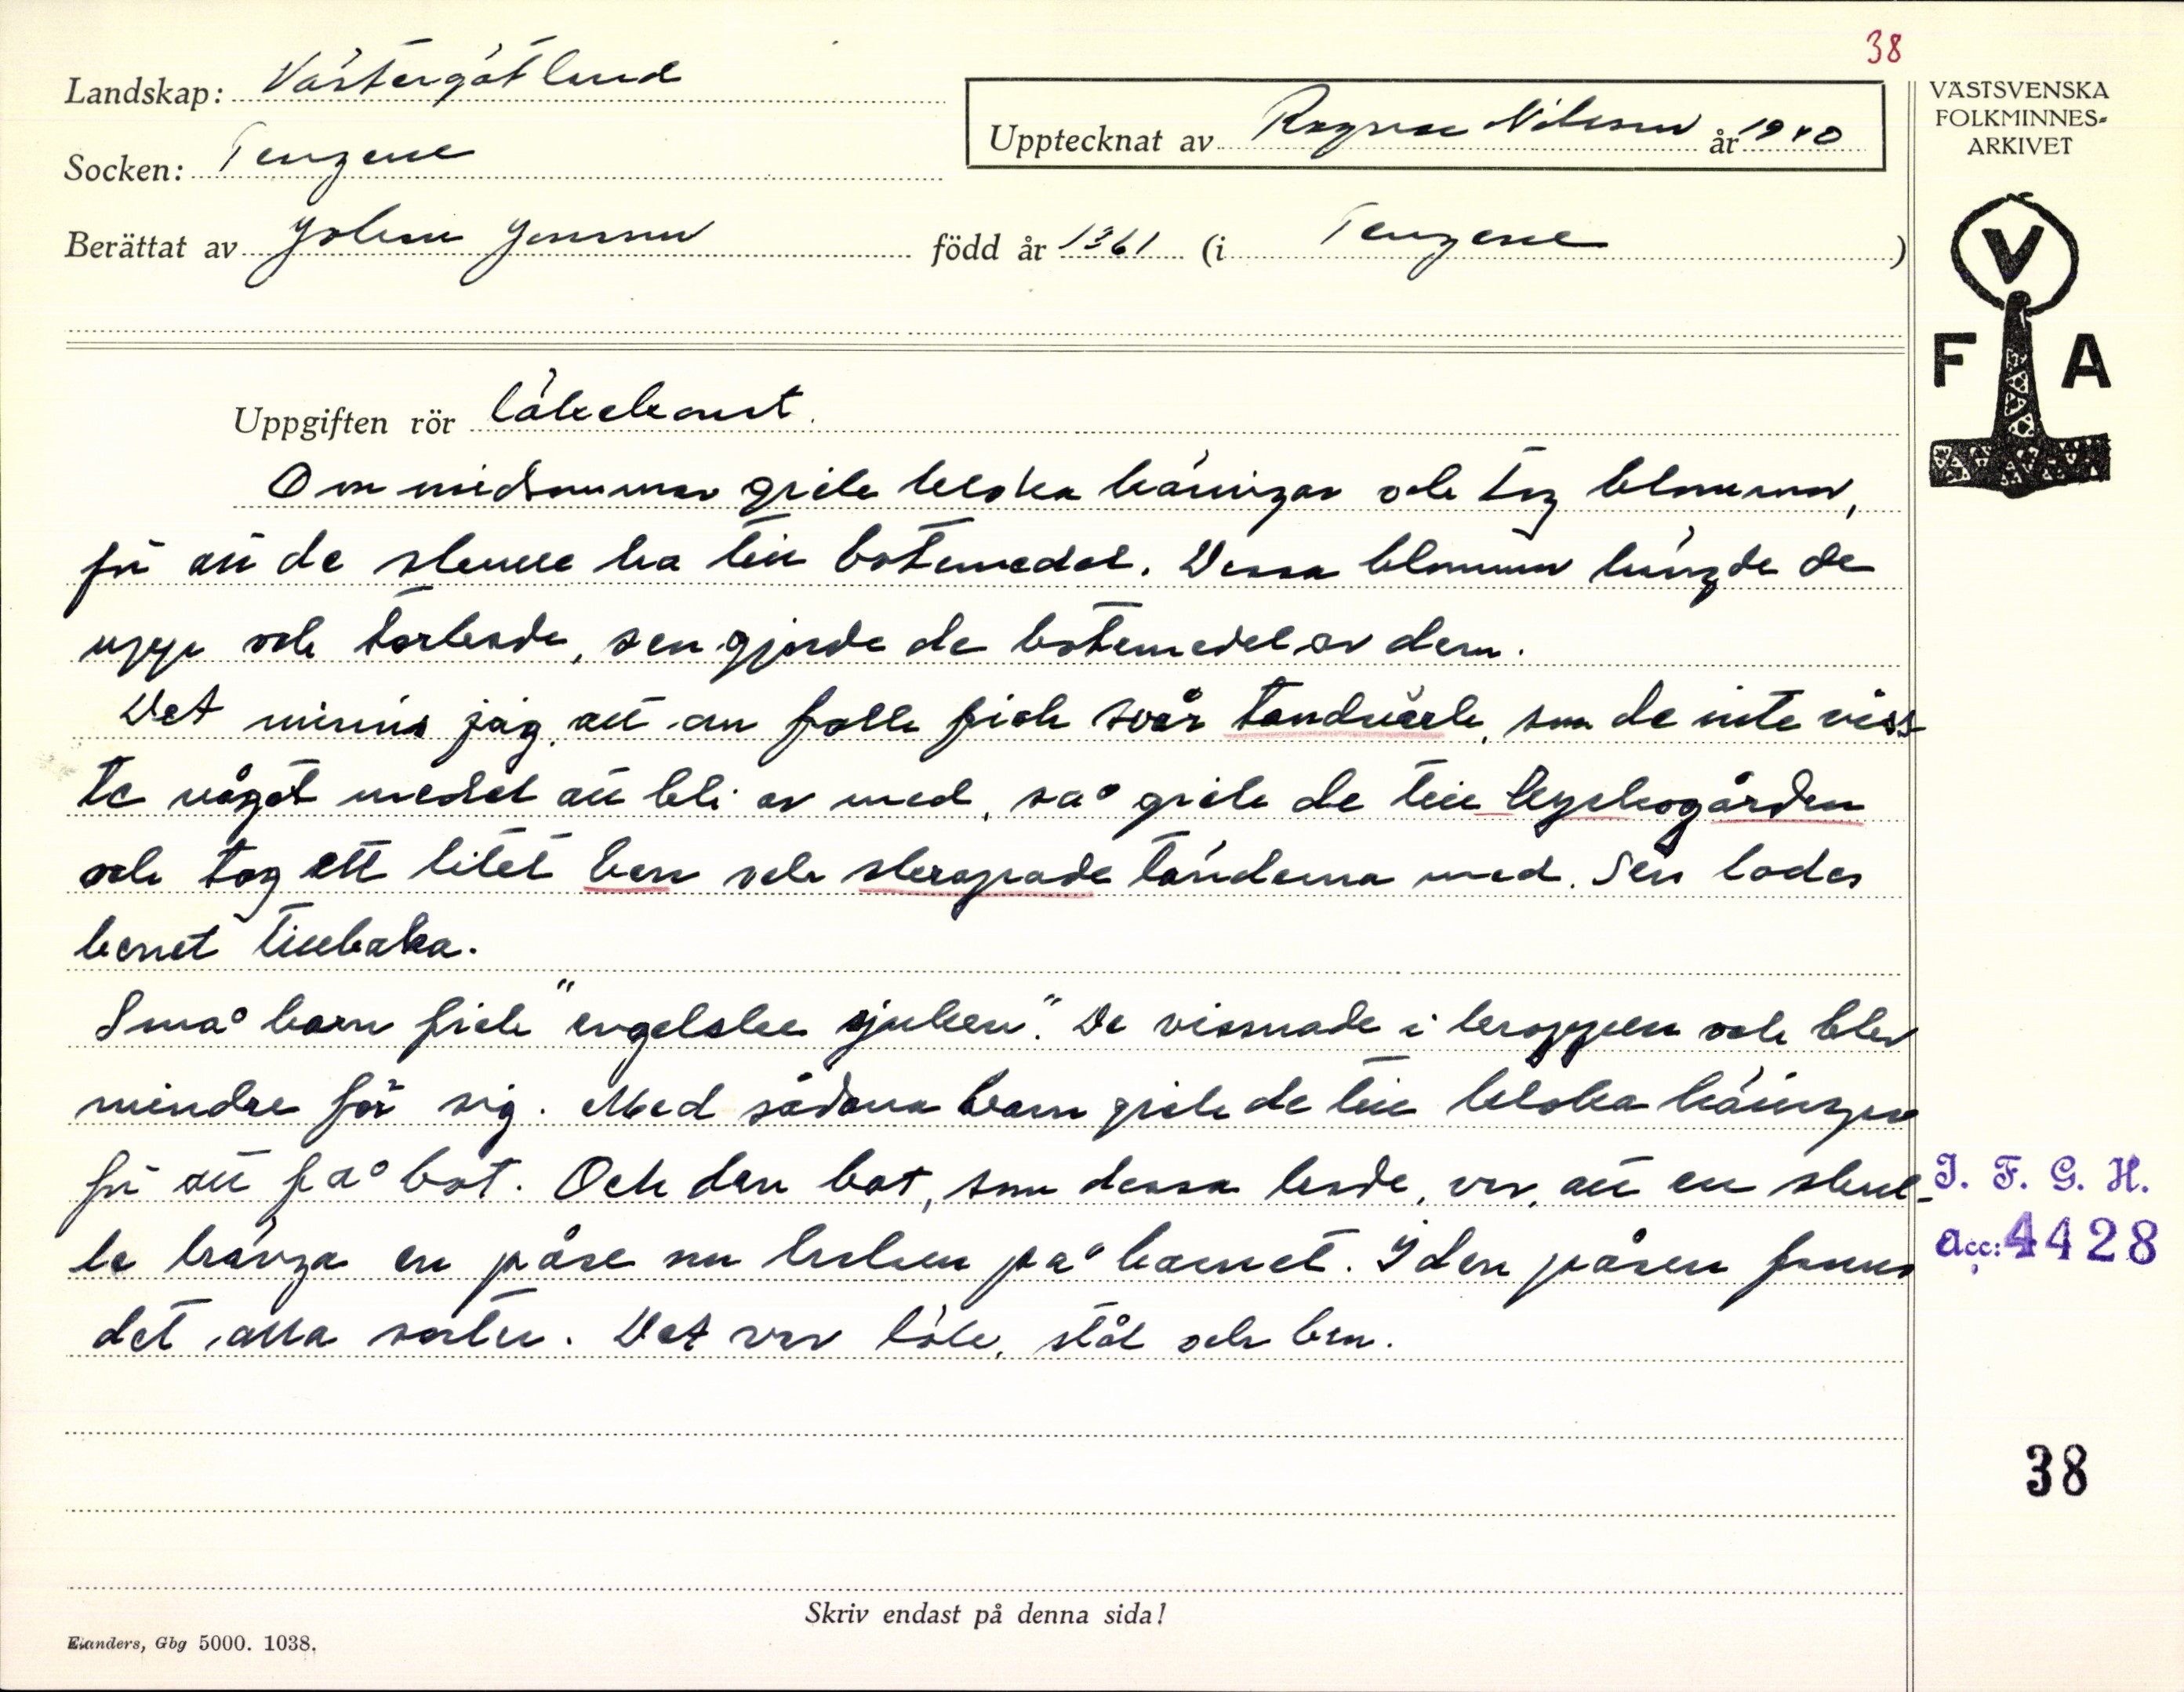 38
Landskap: Västergötland
Socken: Tengene
Upptecknat av Ragnar Nilsson år 1940
Berättat av Johan Jonsson född år 1861 (i Tengene)
VÄSTSVENSKA
FOLKMINNES-
ARKIVET
V
F A
Uppgiften rör läkekonst.
Om midsommar gick kloka käringar och tog blommor,
för att de skulle ha till botemedel. Dessa blommor hängde de
upp och torkade, sen gjorde de botemedel av dem.
Det minns jag, att om folk fick svår tandvärk, som de inte viss-
te något medel att bli av med, så gick de till kyrkogården
och tog ett litet ben och skrapade tänderna med. Sen lades
benet tillbaka.
Små barn fick "engelska sjukan". De vissnade i kroppen och blev
mindre för sig. Med sådana barn gick de till kloka käringar
för att få bot. Och den bot, som dessa hade, var, att en skul-
le hänga en påse om halsen på barnet. I den påsen fanns
det alla sorter. Det var lök, stål och ben.
I. F. G. H.
Acc: 4428
38
Skriv endast på denna sida!
Elanders, Gbg 5000. 1038.